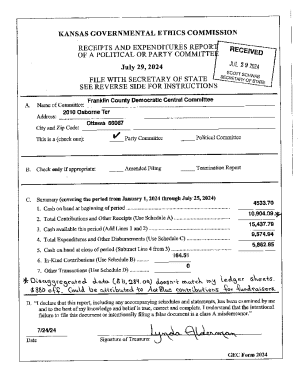 KANSAS GOVERNMENTAL ETHICS COMMISSION
RECEIPTS AND EXPENDITURES REPORT
OF A POLITICAL OR PARTY COMMITTEE
July 29, 2024
RECEIVED
JUL 29 2024
SCOTT SCHWAB
SECRETARY OF STATE
FILE WITH SECRETARY OF STATE
SEE REVERSE SIDE FOR INSTRUCTIONS
A. Name of Committee: Franklin County Democratic Central Committee
Address: 2010 Osborne Ter
City and Zip Code: Ottawa 66067
This is a (check one): ✓ Party Committee Political Committee
B. Check only if appropriate: Amended Filing Termination Report
C. Summary (covering the period from January 1, 2024 through July 25, 2024)
1. Cash on hand at beginning of period 4533.70
2. Total Contributions and Other Receipts (Use Schedule A) 10,904.09 *
3. Cash available this period (Add Lines 1 and 2) 15,437.79
4. Total Expenditures and Other Disbursements (Use Schedule C) 9,574.94
5. Cash on hand at close of period (Subtract Line 4 from 3) 5,862.85
6. In-Kind Contributions (Use Schedule B) 164.51
7. Other Transactions (Use Schedule D) 0
* Disaggregated data ( doesn't match my ledger sheets.
$380 off. Could be attributed to Act Blue contributions for fundraisers
D. "I declare that this report, including any accompanying schedules and statements, has been examined by me
and to the best of my knowledge and belief is true, correct and complete. I understand that the intentional
failure to file this document or intentionally filing a false document is a class A misdemeanor."
7/24/24 Lynda Alderman
Date Signature of Treasurer
GEC Form 2024